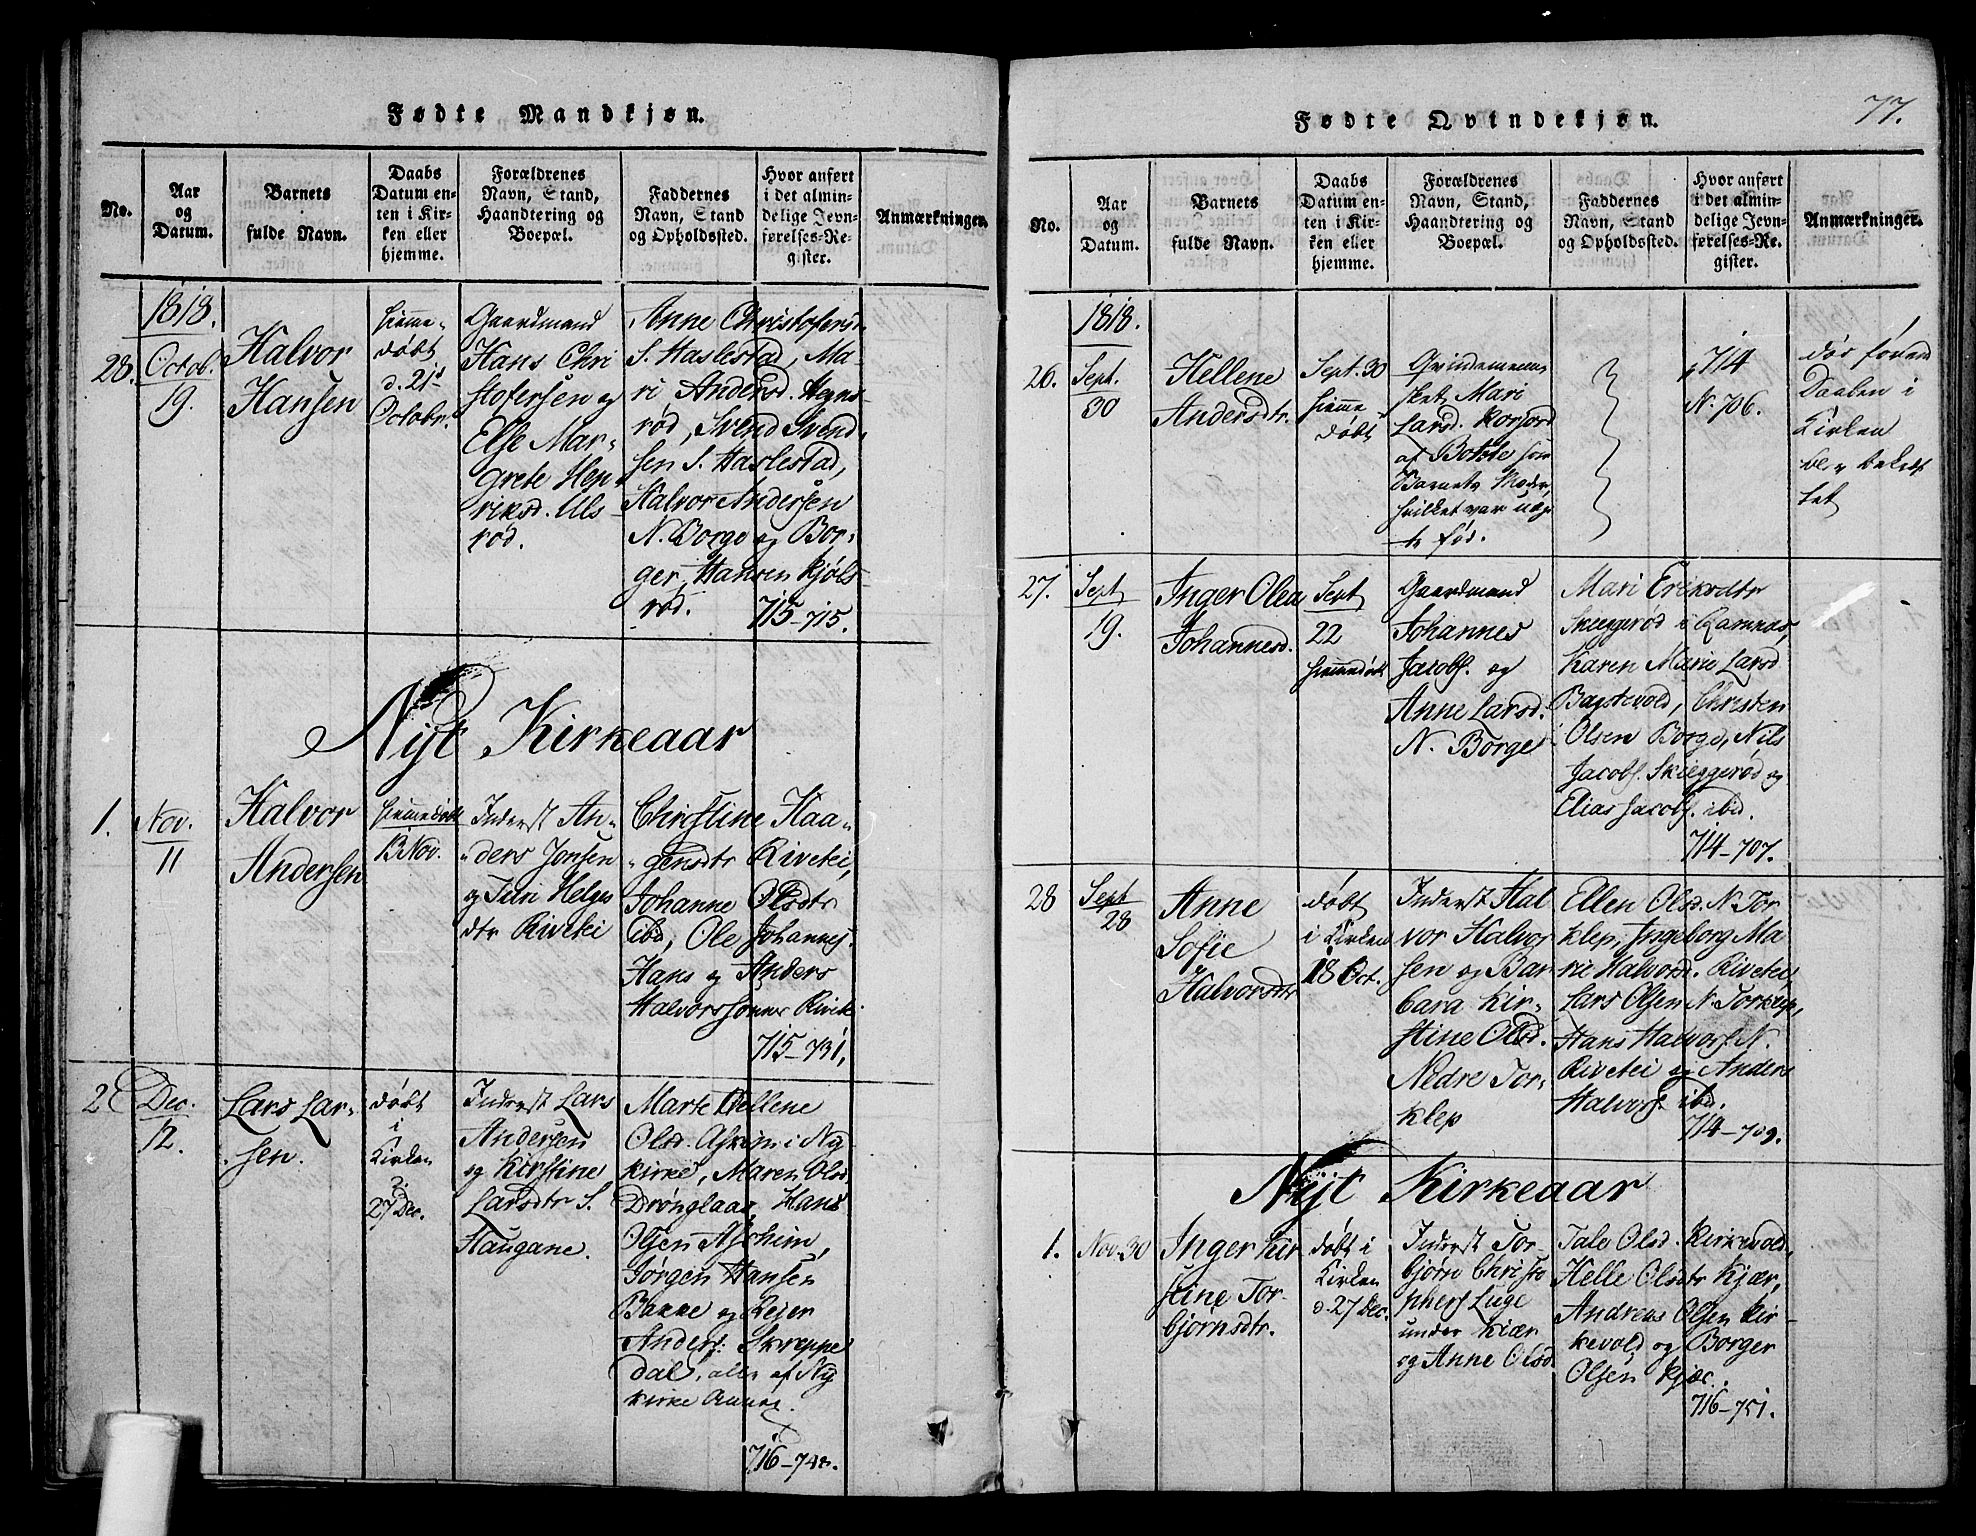 Fødte Mandkjøn.
No.
Aar
og
Datum.
Barnets
fulde Navn.
Daabs
Datum en-
ten i Kir-
ken eller
hjemme.
Forældrenes
Navn, Stand,
Haandtering og
Boepæl.
Faddernes
Navn, Stand
og Opholdssted.
Hvor anført
i det almin-
delige Jevn-
førelses-Re-
gister.
Anmærkninger.
1818.
28.
Octob.
19.
Halvor
Hansen
hiemme-
døbt
d. 21
Octobr.
Gaardmand
Hans Chri
stofersen og
Else Mar-
grete Hen
riksd. Uls
rød.
Anne Christofersd.
S. Haslestad, Ma-
ri Andersd.
rød, Svend Svend-
sen S. Haslestad,
Halvor Andersen
N. Borge og Bor-
ger Hansen Kjøls-
rød.
715-715.
Nyt Kirkeaar
1.
Nov.
11
Halvor
Andersen
hiemmedøbt
13 Nov.
Inderst An-
ders Jonsen
og Turi Helges
dtr Rivetei
Christine Haa-
gensdtr Rivetei,
Johanne Olsdtr
ibd, Ole Johannes.
Hans og Anders
Halvorssønner Rivetei
715-731.
2
Dec.
12.
Lars Lar-
sen.
døbt
i
Kirken
27 Dec.
Inderst Lars
Andersen
og Kirstine
Larsdtr S.
Haugane.
Marte Hellene
Olsd. i Ny
kirke, Maren Olsd
Drønglaas, Hans
Olsen
Jørgen Hansen
Bakke og Leier
Anders. Skreppe
dal, alle af Ny
kirke Annex.
Fødte Qvindekjøn.
77.
No.
Aar
og
Datum.
Barnets
fulde Navn.
Daabs
Datum en-
ten i Kir-
ken eller
hjemme.
Forældrenes
Navn, Stand,
Haandtering og
Boepæl.
Faddernes
Navn, Stand
og Opholdssted.
Hvor anført
i det almin-
delige Jevn-
førelses-Re-
gister.
Anmærkninger.
1818.
26.
Sept.
30
Hellene
Andersdtr.
Sept. 30
hiemme
døbt
Qvindemenne
sket Mari
Larsd. Korsord
af Botne som
Barnets Moder,
hvilket var uægte
fød.
714
N. 706.
døde førend
Daaben i
Kirken
blev bekræf
tet
27.
Sept
19.
Inger Olea
Johannesd.
Sept
22
hiemmedøbt
Gaardmand
Johannes
Jacobs. og
Anne Larsd.
N. Borge
Mari Eriksdtr
Skieggerød i Ramnes,
Karen Marie Larsd
Bastevold, Christen
Olsen Borge, Nils
Jacobs. Skieggerød og
Elias Jacobs. ibd.
714-707.
28
Sept
28
Anne
Sofie
Halvorsdtr
døbt
i Kirken
18 Oct.
Inderst Hal
vor Halvor
sen og Bar
bara Kir-
stine Olsd.
Nedre Tor-
klep
Ellen Olsd. N. Tor
klep, Ingeborg Ma
rie Halvorsd. Rivetei,
Lars Olsen N. Torklep,
Hans Halvors. N.
Rivetei og Anders
Halvors. ibd.
714-709.
Nyt Kirkeaar
1.
Nov. 30
Inger Kir
stine Tor-
bjørnsdtr.
døbt i
Kirken
d. 27 Dec.
Inderst Tor-
bjørn Christo
phers Lüge
under Kiær
og Anne Olsd
Tale Olsd. Kirkevold,
Helle Olsdtr Kjær,
Andreas Olsen Kir-
kevold og Borger
Olsen Kjær.
716-751.